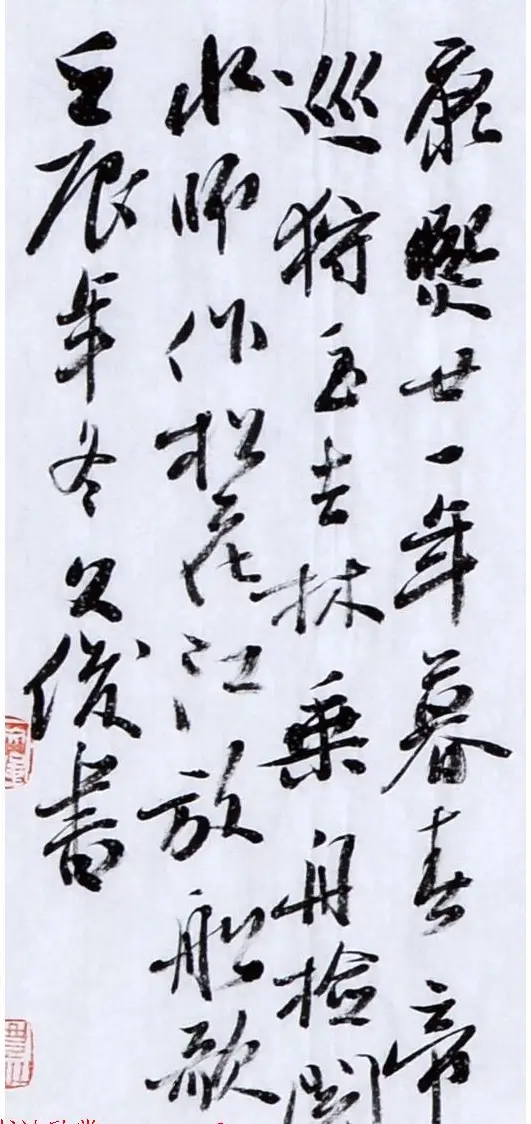 康熙廿一年暮春帝
巡狩至吉林乘舟检阅
水师作松花江放船歌
壬辰年冬文俊书